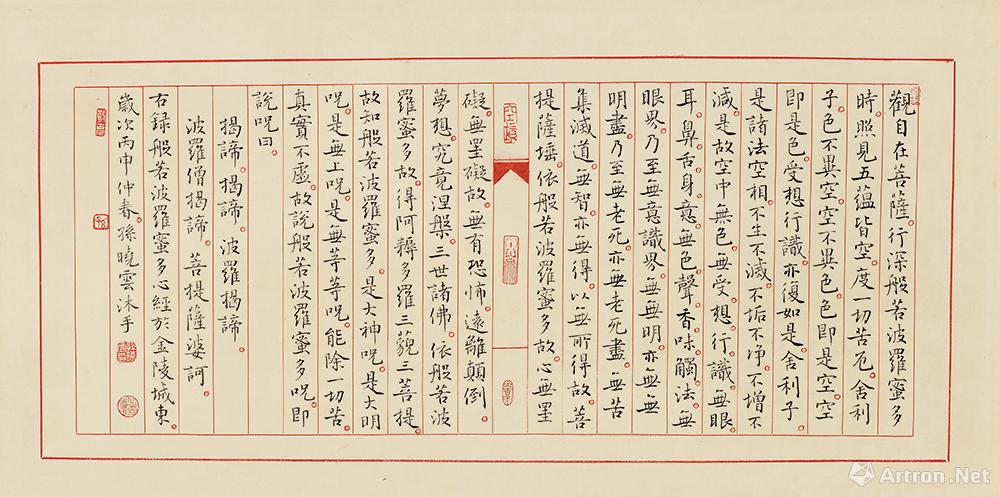 觀自在菩薩。行深般若波羅蜜多
時。照見五蘊皆空。度一切苦厄。舍利
子。色不異空。空不異色。色即是空。空
即是色。受想行識。亦復如是。舍利子。
是諸法空相。不生不滅。不垢不净。不增不
減。是故空中無色。無受想行識。無眼
耳鼻舌身意。無色聲香味觸法。無
眼界。乃至無意識界。無無明。亦無無
明盡。乃至無老死。亦無老死盡。無苦
集滅道。無智亦無得。以無所得故。菩
提薩埵。依般若波羅蜜多故。心無罣
礙。無罣礙故。無有恐怖。遠離顛倒
夢想。究竟涅槃。三世諸佛。依般若波
羅蜜多故。得阿耨多羅三藐三菩提。
故知般若波羅蜜多。是大神咒。是大明
咒。是無上咒。是無等等咒。能除一切苦。
真實不虛。故說般若波羅蜜多咒。即
說咒曰。
揭諦。揭諦。波羅揭諦。
波羅僧揭諦。菩提薩婆訶。
右録般若波羅蜜多心經於金陵城東。
歲次丙申仲春。孫曉雲沐手
雅昌艺术网
Artron.Net